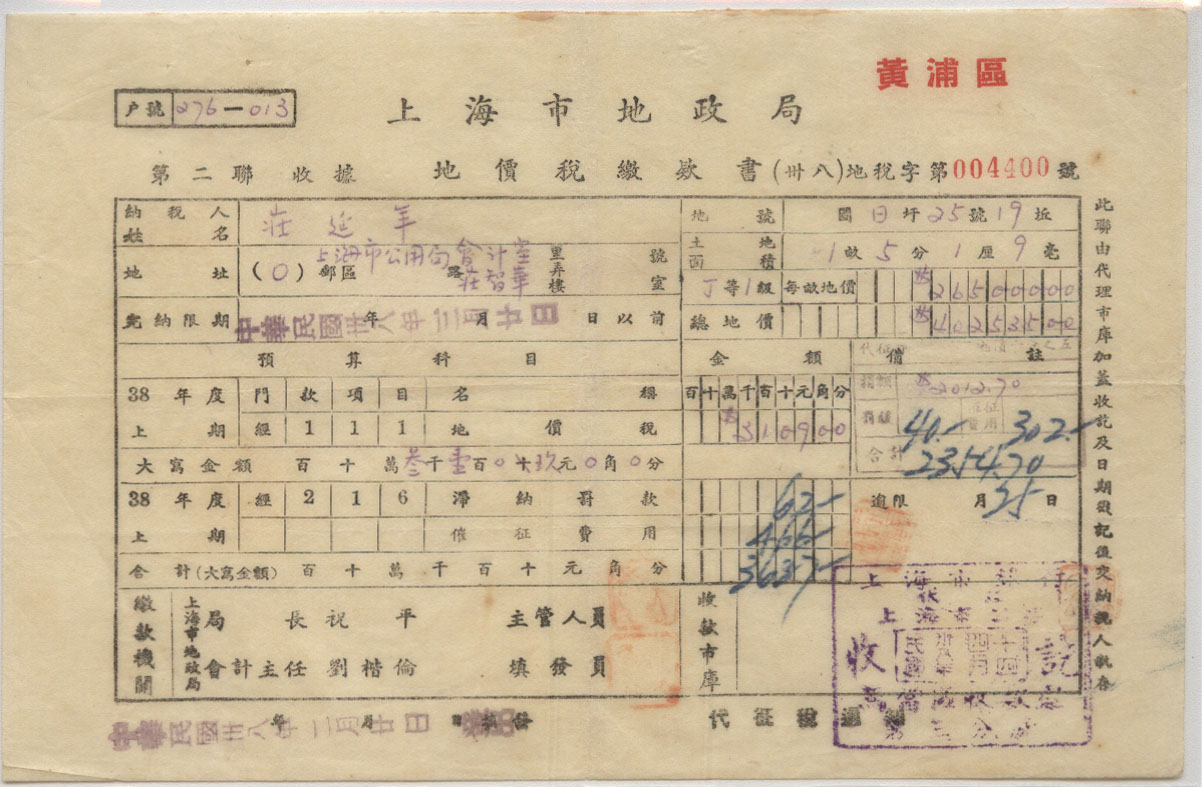 黃浦區
戶號 276—013
上海市地政局
第二聯 收據 地價稅繳款書 (卅八)地稅字第004400號
納稅人姓名 莊延年
地號 圖 日 圩 25 號 19 坵
地址 (0) 郵區 上海市公用局會計室 莊智華 路 里弄樓 號室
土地面積 1畝5分1厘9毫
丁等1級 每畝地價 26500000
完納限期 中華民國卅八年三月廿日 年 月 日以前
總地價 40253500
預算科目 金額 備註
38年度 門 款 項 目 名稱 百十萬千百十元角分
捐額 2012.70
上期 經 1 1 1 地價稅 310900
40.- 302.-
大寫金額 百十萬叁千壹百0十玖元0角0分
合計 2354.70
38年度 經 2 1 6 滯納罰款 62-
逾限 月25日
上期 催征費用 466-
合計(大寫金額) 百十萬千百十元角分 3637-
繳款機關 上海市地政局 局長祝平 主管人員
會計主任 劉楷倫 填發員
收款市庫
收訖
中華民國卅八年二月廿日
年 月 日填發
代征稅
此聯由代理市庫加蓋收訖及日期戳記值交納稅人執存